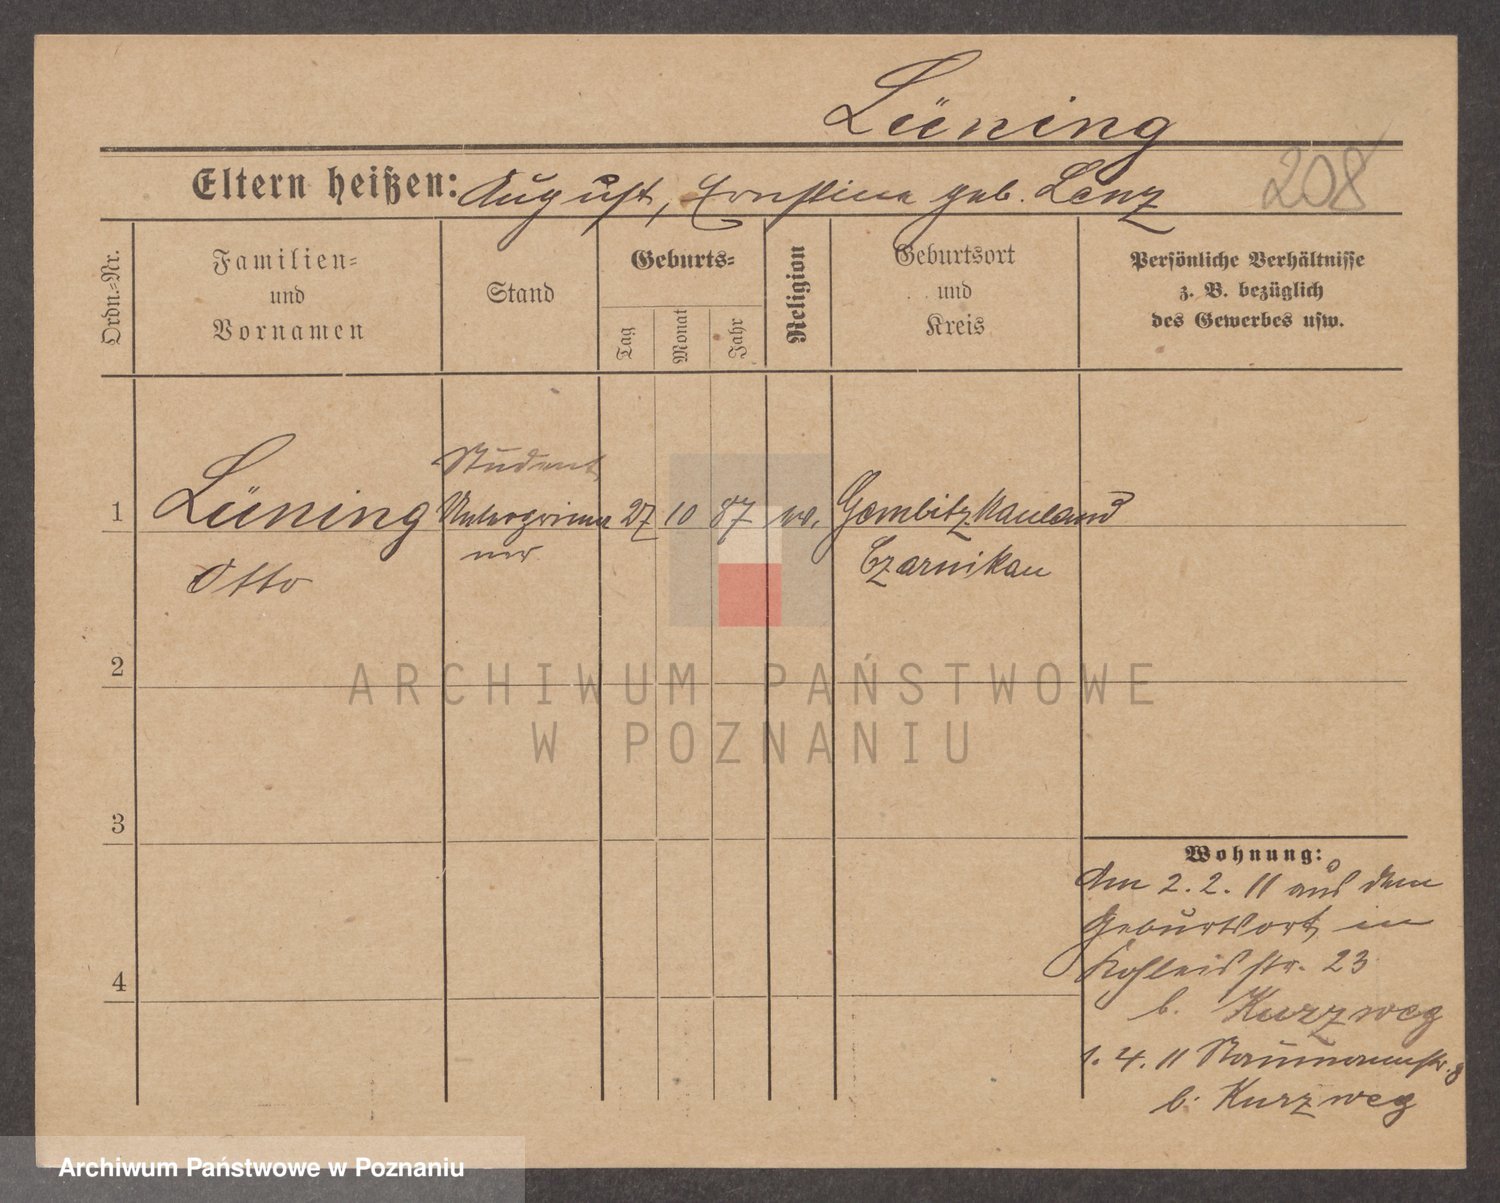 Lüning
Eltern heißen: August, Ernstine geb. Lenz
208
Ordn.=Nr.
Familien=
und
Vornamen
Stand
Geburts=
Tag
Monat
Jahr
Religion
Geburtsort
und
Kreis
Persönliche Verhältnisse
z. B. bezüglich
des Gewerbes usw.
Student
1 Lüning Unterprima 27 10 87 ev. Gembitz Hauland
ner
Otto Czarnikau
2
3
4
Wohnung:
Am 2. 2. 11 aus dem
Geburtsort in
Kohleisstr. 23
b. Kurzweg
1. 4. 11 Naumannstr. 8
b. Kurzweg
ARCHIWUM PAŃSTWOWE
W POZNANIU
Archiwum Państwowe w Poznaniu